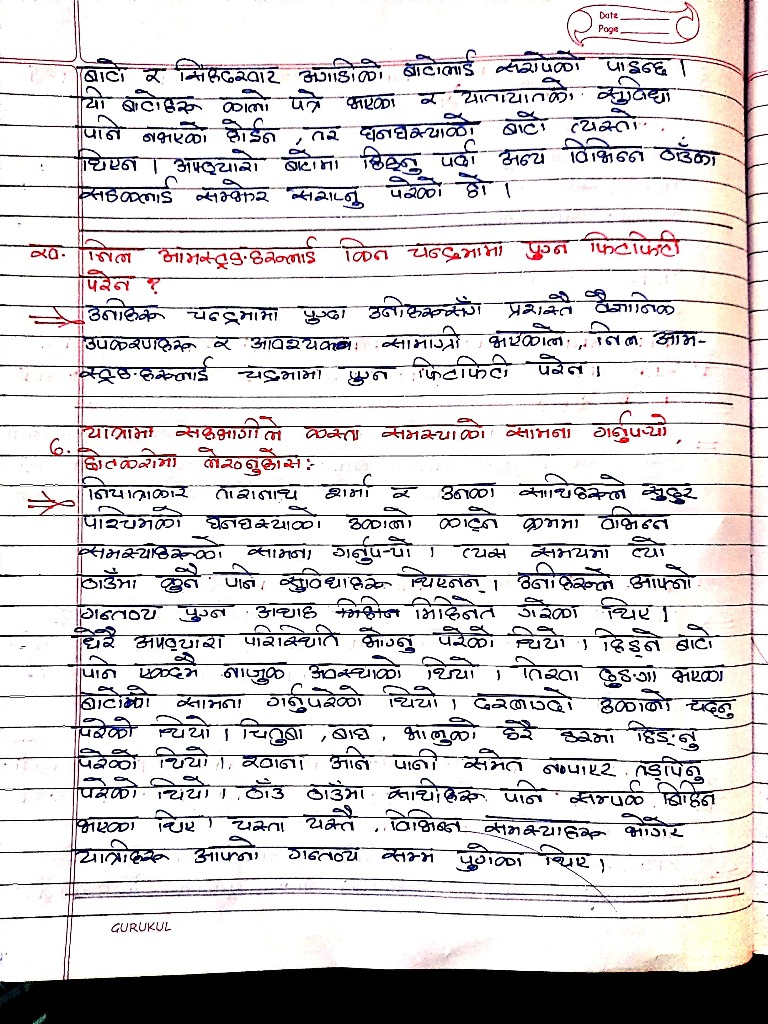 Date
Page
बाटो र सिंहदरवार अगाडीको बाटोलाई सरापेको पाइन्छ ।
यी बाटोहरू कालो पत्रे भएका र यातायातको सुविधा
पनि नभएको होईन , तर घनघस्याको बाटो त्यस्तो
थिएन । अप्ठ्यारो बाटोमा हिड्नु पर्दा अन्य विभिन्न ठाउँका
सडकलाई सम्झेर सराप्नु परेको हो ।
२०. निल आमस्ट्रङ-हरूलाई किन चन्द्रमामा पुग्न फिटीफिटी
परेन ?
उनीहरू चन्द्रमामा पुग्दा उनीहरूसँग प्रशस्तै वैज्ञानिक
उपकरणहरू र आवश्यक सामाग्री भएकोले , निल आम-
स्ट्रङ-हरूलाई चद्रमामा पुग्न फिटीफिटी परेन ।
6. यात्रामा सहभागीले कस्ता समस्याको सामना गर्नुपर्‍यो,
छोटकरीमा लेख्नुहोस :-
नियात्राकार तारानाथ शर्मा र उनका साथीहरूले सुदुर
पश्चिमको घनघस्याको उकालो काट्ने क्रममा विभिन्न
समस्याहरूको सामना गर्नुपर्‍यो । त्यस समयमा त्यो
ठाउँमा कुनै पनि सुविधाहरू थिएनन् । उनीहरूले आफ्नो
गन्तव्य पुग्न अथाह मिहिनेत गरेका थिए ।
धेरै अप्ठ्यारा परिस्थिति भोग्नु परेको थियो । हिड्ने बाटो
पनि एकदमै नाजुक अवस्थाको थियो । तिखा ढुङ्गा भएका
बाटोको सामना गर्नुपरेको थियो । दरलाग्दो उकालो चढ्नु
परेको थियो । चितुवा , बाघ , भालुको धेरै डरमा हिड्नु
परेको थियो । खाना अनि पानी समेत नपाएर तड्पिनु
परेको थियो । ठाँउ ठाँउमा साथीहरू पनि सम्पर्क बिहिन
भएका थिए । यस्ता यस्तै , विभिन्न समस्याहरू भोगेर
यात्रीहरू आफ्नो गन्तव्य सम्म पुगेका थिए ।
GURUKUL